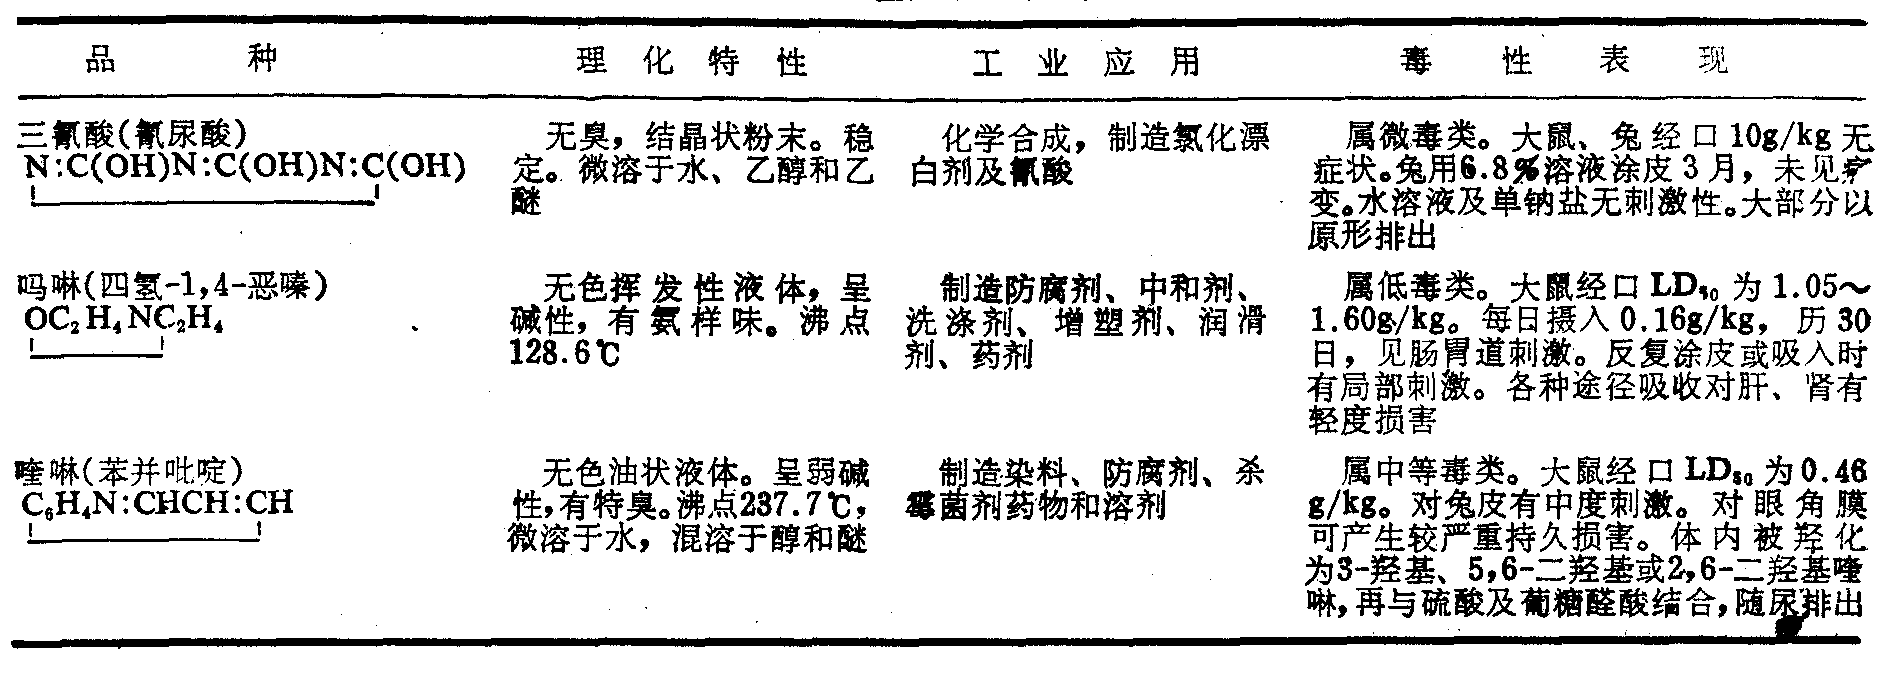 品 种 理化特性 工业应用 毒性表现
三氰酸(氰尿酸)
N:C(OH)N:C(OH)N:C(OH)
无臭，结晶状粉末。稳
定。微溶于水、乙醇和乙
醚
化学合成，制造氯化漂
白剂及氰酸
属微毒类。大鼠、兔经口10g/kg无
症状。兔用6.8%溶液涂皮3月，未见病
变。水溶液及单钠盐无刺激性。大部分以
原形排出
吗啉(四氢-1,4-恶嗪)
OC₂H₄NC₂H₄
无色挥发性液体，呈
碱性，有氨样味。沸点
128.6℃
制造防腐剂、中和剂、
洗涤剂、增塑剂、润滑
剂、药剂
属低毒类。大鼠经口LD₅₀为1.05～
1.60g/kg。每日摄入0.16g/kg，历30
日，见肠胃道刺激。反复涂皮或吸入时
有局部刺激。各种途径吸收对肝、肾有
轻度损害
喹啉(苯并吡啶)
C₆H₄N:CHCH:CH
无色油状液体。呈弱碱
性，有特臭。沸点237.7℃，
微溶于水，混溶于醇和醚
制造染料、防腐剂、杀
霉菌剂药物和溶剂
属中等毒类。大鼠经口LD₅₀为0.46
g/kg。对兔皮有中度刺激。对眼角膜
可产生较严重持久损害。体内被羟化
为3-羟基、5,6-二羟基或2,6-二羟基喹
啉，再与硫酸及葡糖醛酸结合，随尿排出